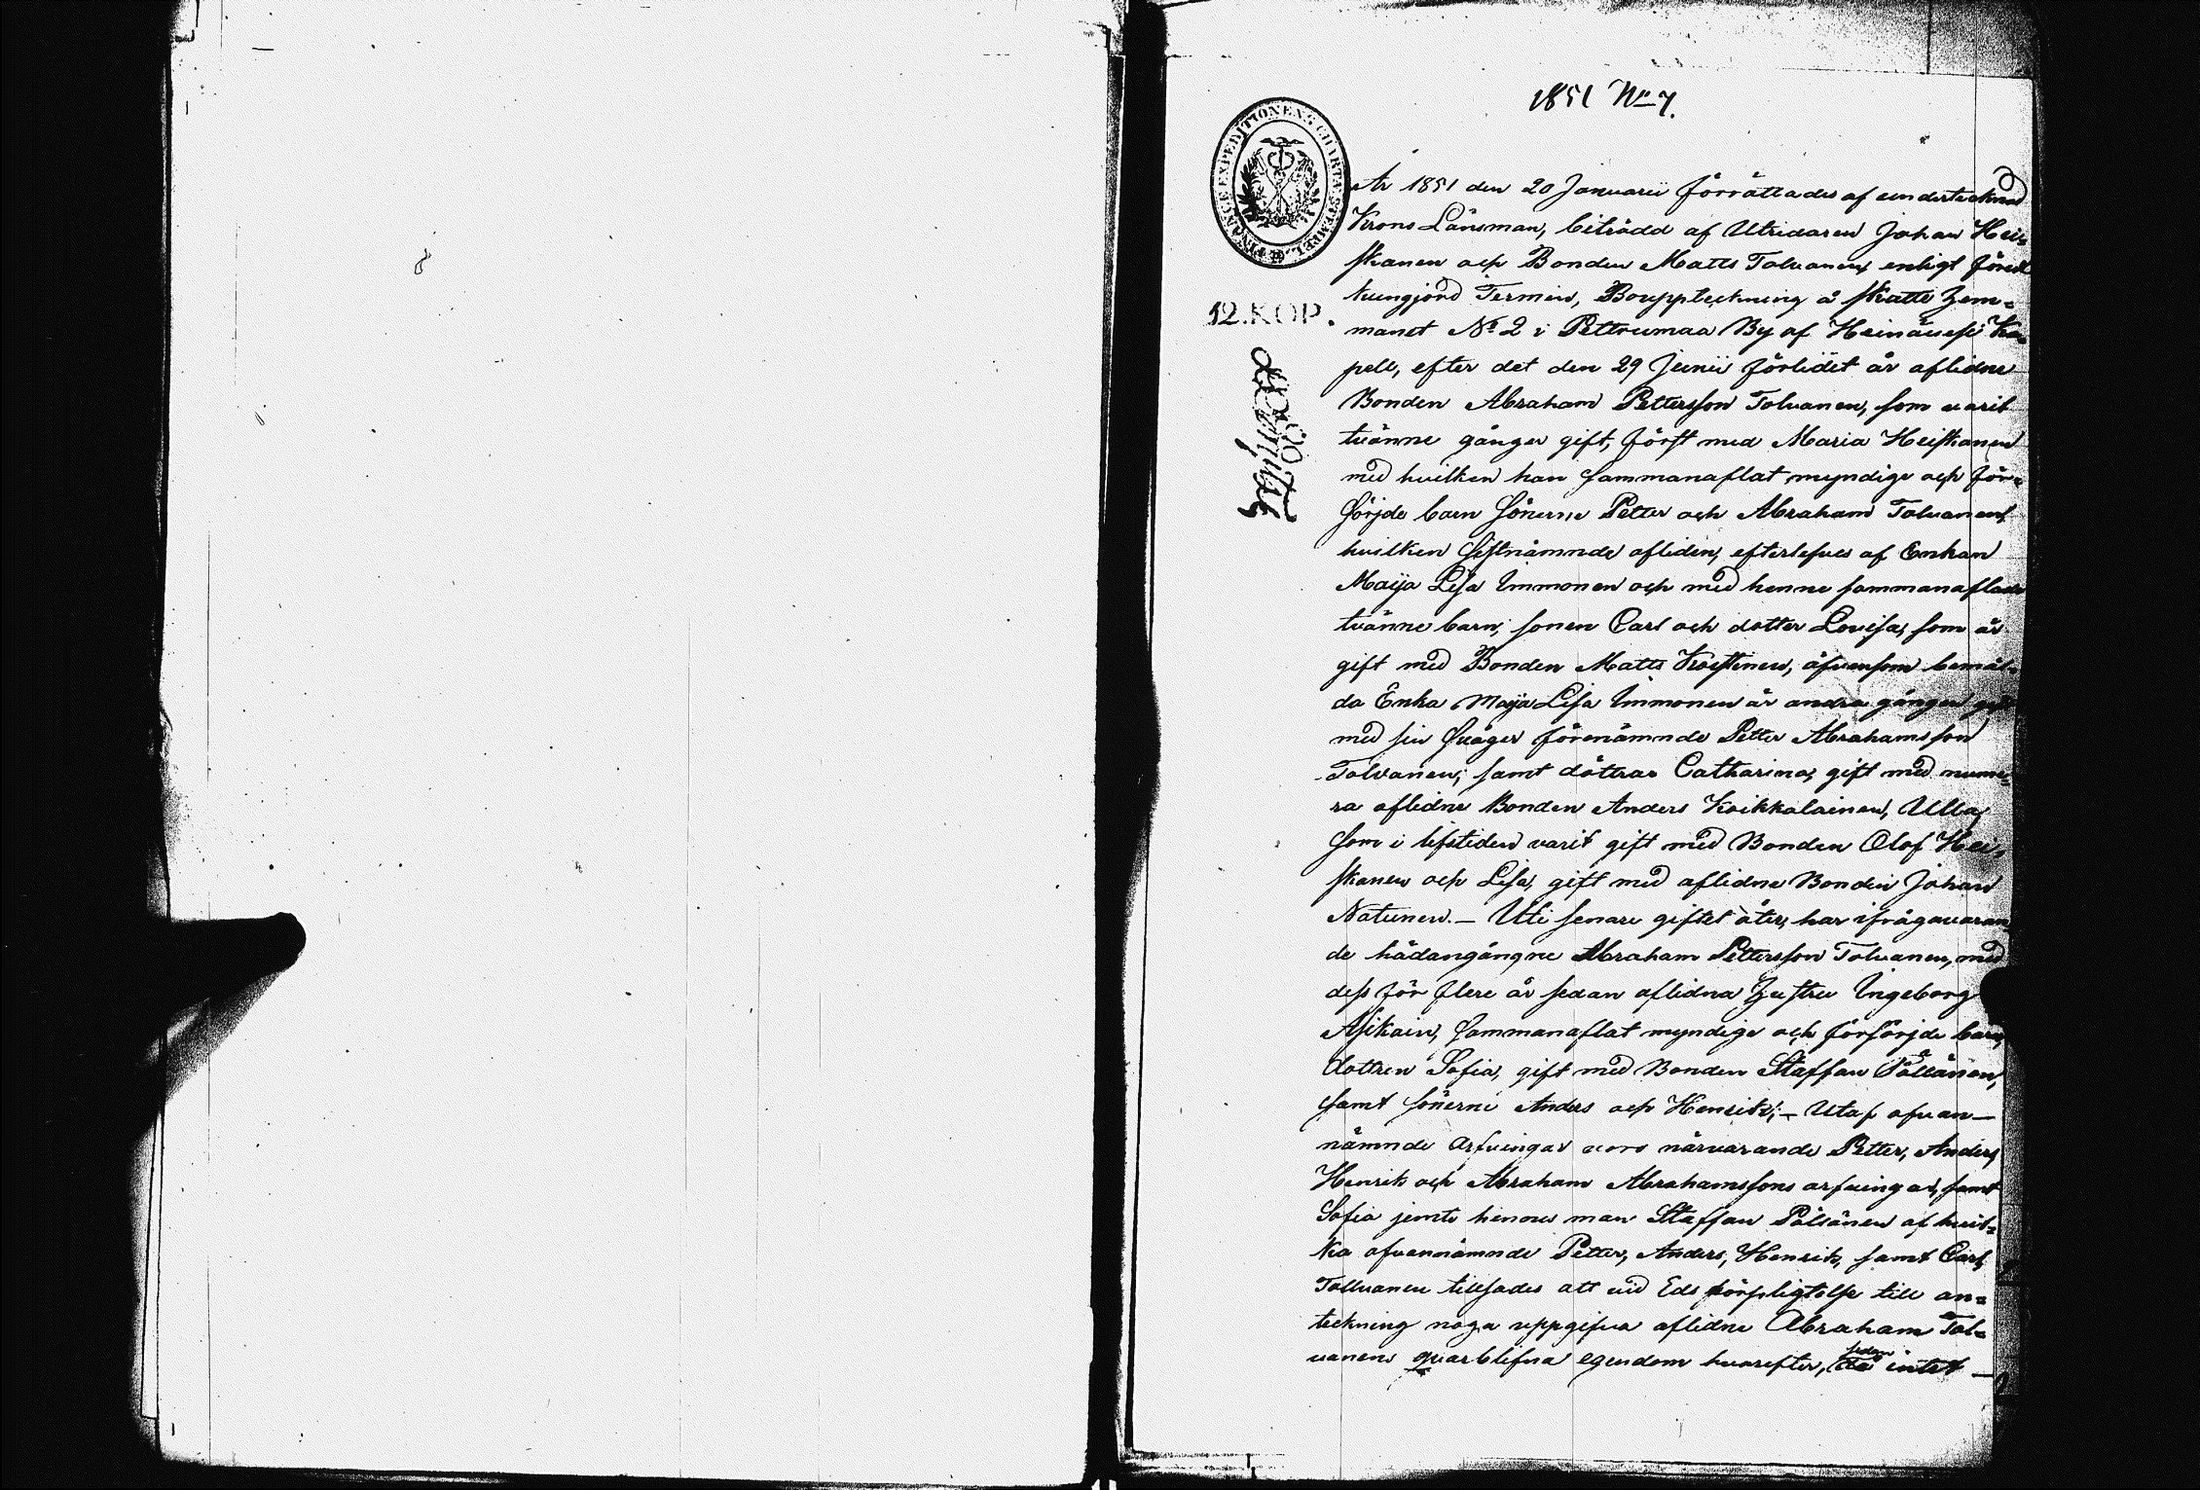 1851 No 7.
FINANCE EXPEDITIONENS CHARTÆ STEMPEL
12. KOP.
År 1851 den 20 Januarii förrättades af undertecknad
Krono Länsman, biträdd af Utridaren Johan Hei-
skanen och Bonden Matts Tolvanen, enligt förut
kungjord Termin, Bouppteckning å skatte Hem-
manet No 2 i Pettrumaa By af Heinävesi Ka-
pell, efter det den 29 Junii förlidet år aflidne
Bonden Abraham Pettersson Tolvanen, som varit
tvänne gånger gift, först med Maria Heiskanen
med hvilken han sammanaflat myndige och för-
sörjde barn sönerne Petter och Abraham Tolvanen,
hvilken sistnämnde afliden, efterlefves af Enkan
Maija Lisa Immonen och med henne sammanaflade
tvänne barn, sonen Carl och dotter Lovisa, som är
gift med Bonden Matts, äfvensom bemäl-
da Enka Maija Lisa Immonen är andra gången gift
med sin Svåger förenämnde Petter Abrahamsson
Tolvanen; samt döttrar Catharina, gift med nume-
ra aflidne Bonden Anders Kaikkalainen, Ulla,
som i lifstiden varit gift med Bonden Olof Hei-
skanen och Lisa, gift med aflidne Bonden Johan
Natunen. — Uti senare giftet åter, har ifrågavaran
de hädangångne Abraham Pettersson Tolvanen, med
dess för flere år sedan aflidna Hustru Ingeborg
Asikain, sammanaflat myndige och försörjde barn,
dottren Sofia, gift med Bonden Staffan Pölläinen,
samt sönerne Anders och Henrik; — Utaf ofvan-
nämnde Arfvingar voro närvarande Petter, Anders,
Henrik och Abraham Abrahamssons arfvingar, samt
Sofia jemte hennes man Staffan af hvil-
ka ofvannämnde Petter, Anders, Henrik, samt Carl
Tolvanen tillsades att vid Eds förpligtelse till an-
teckning noga uppgifva aflidne Abraham Tol-
vanens qvarblifna egendom hvarefter, sedan intet